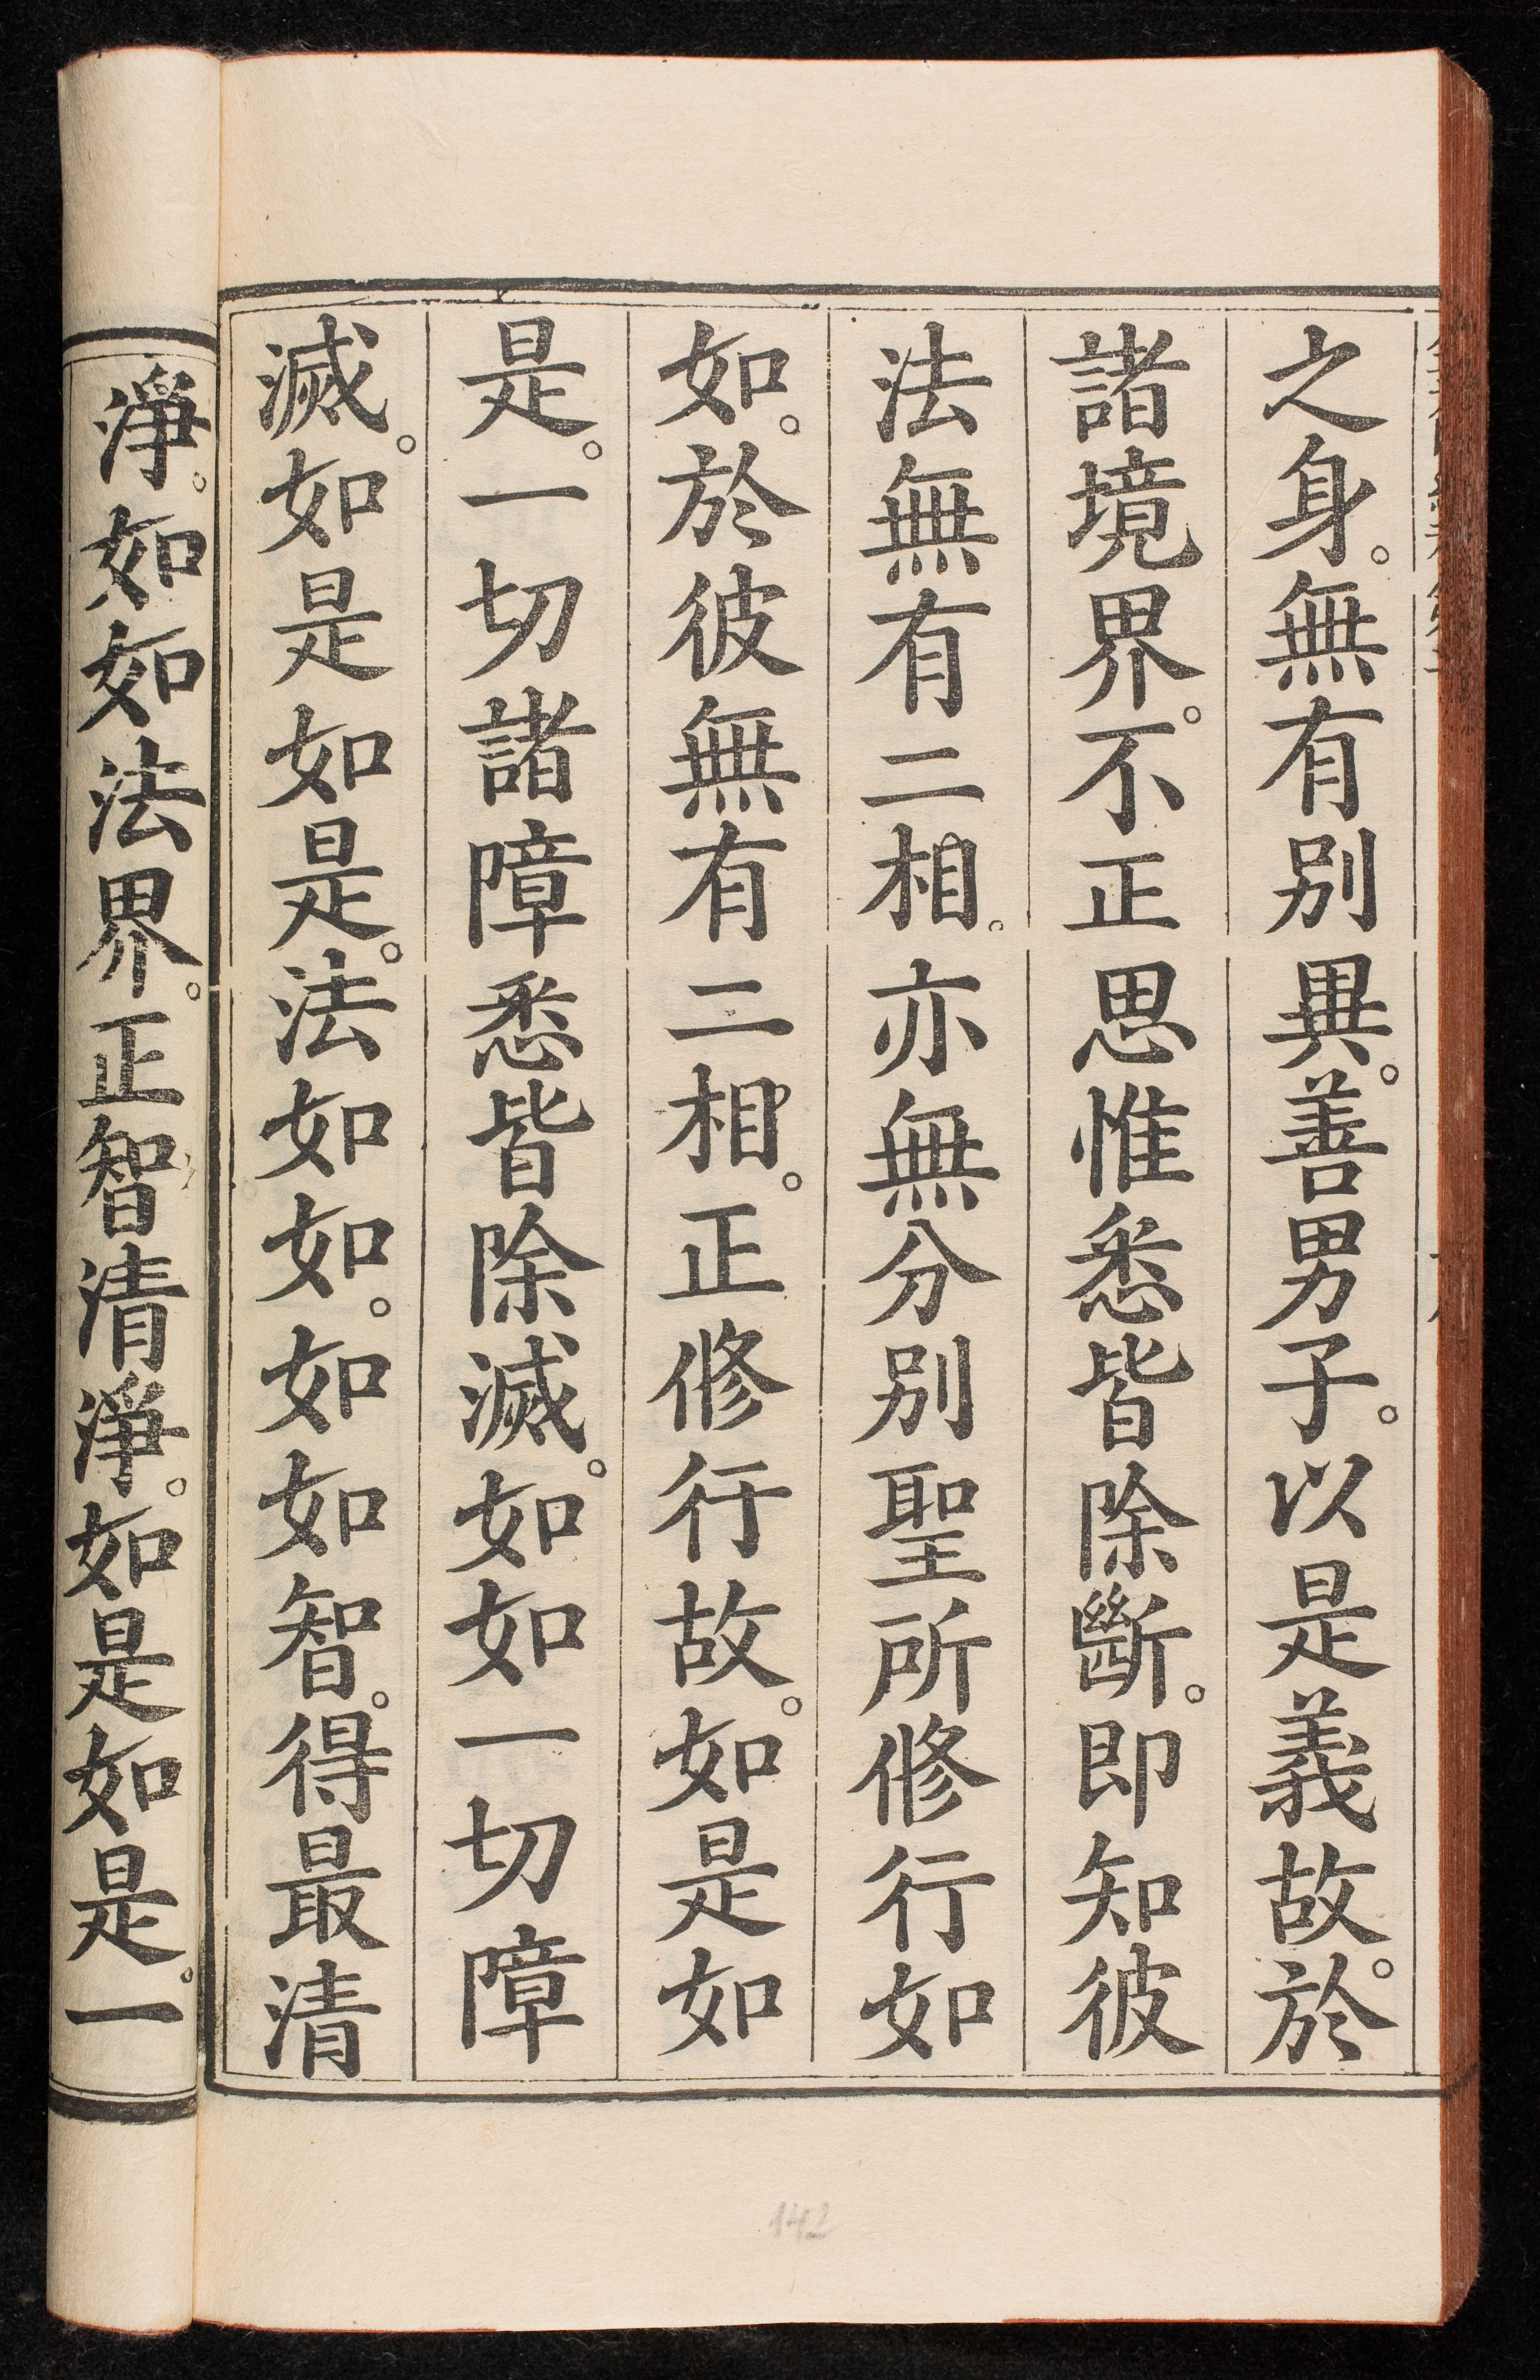 之身。無有別異。善男子。以是義故。於
諸境界。不正思惟悉皆除斷。即知彼
法無有二相。亦無分別聖所修行如
如。於彼無有二相。正修行故。如是如
是。一切諸障悉皆除滅。如如一切障
滅。如是如是。法如如。如如智。得最清
淨。如如法界。正智清淨。如是如是。一
142